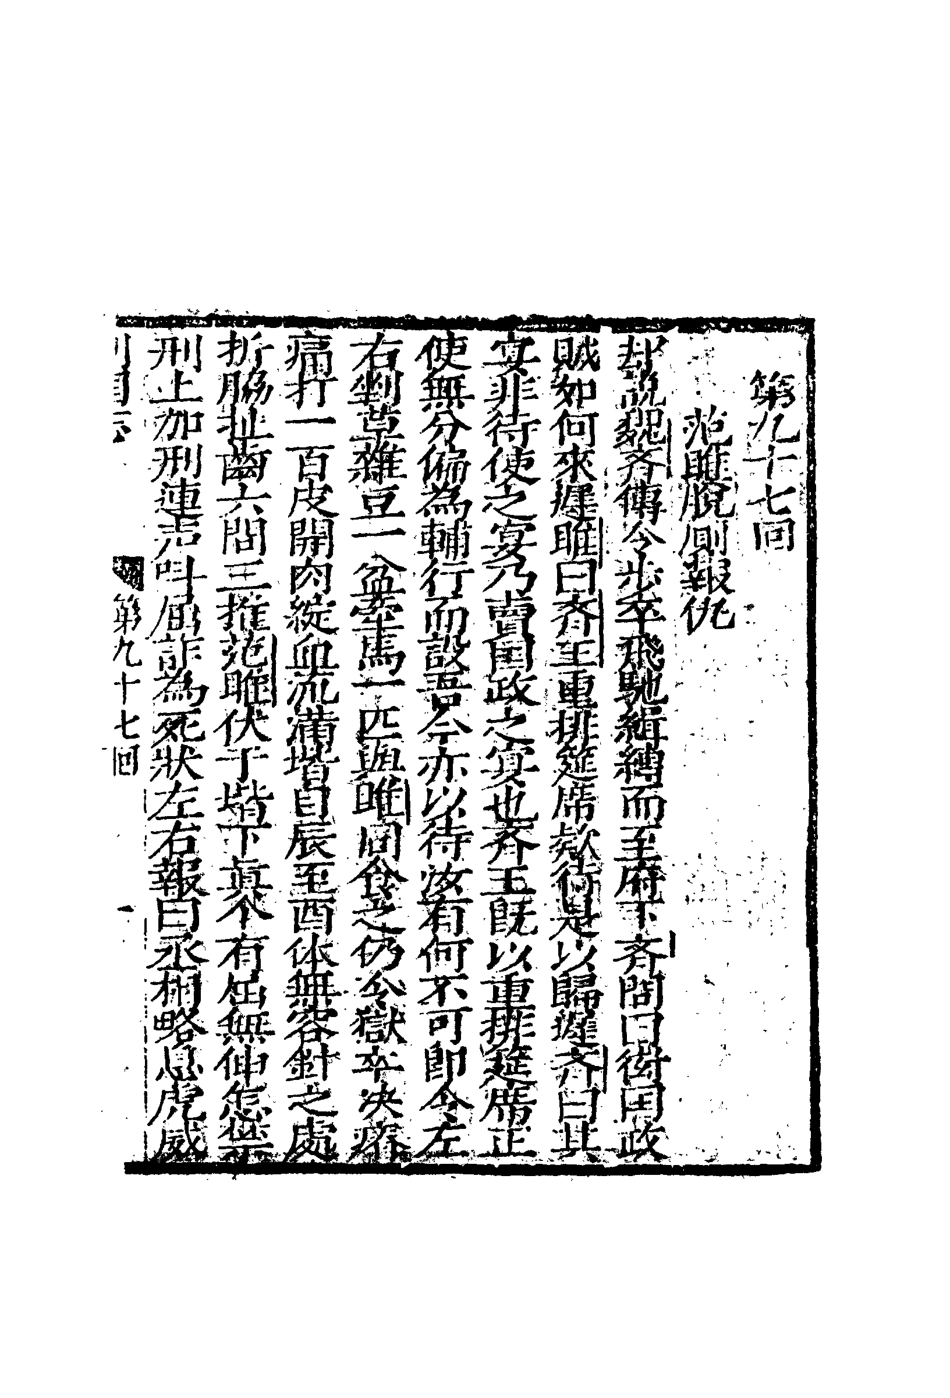 第九十七回
范睢脫厠報仇
却說魏齊傳令步卒飛馳緝縛而至府下齊問曰後因政
賊如何來遲睢曰齊王重排筵席欵待是以歸遲齊曰其
宴非待使之宴乃賣國政之宴也齊王既以重排筵席正
使無分偏為輔行而設吾今亦以待汝有何不可即令左
右剉草雜豆一盆牽馬一匹與睢同食之仍令獄卒决痛
痛打一百皮開肉綻血流滿堦自辰至酉体無容針之處
折脇扯齒六問三推范睢伏于堦下真个有屈無伸怎禁
刑上加刑連声呌屈詐為死狀左右報曰丞相略息虎威
列國志
第九十七回
一